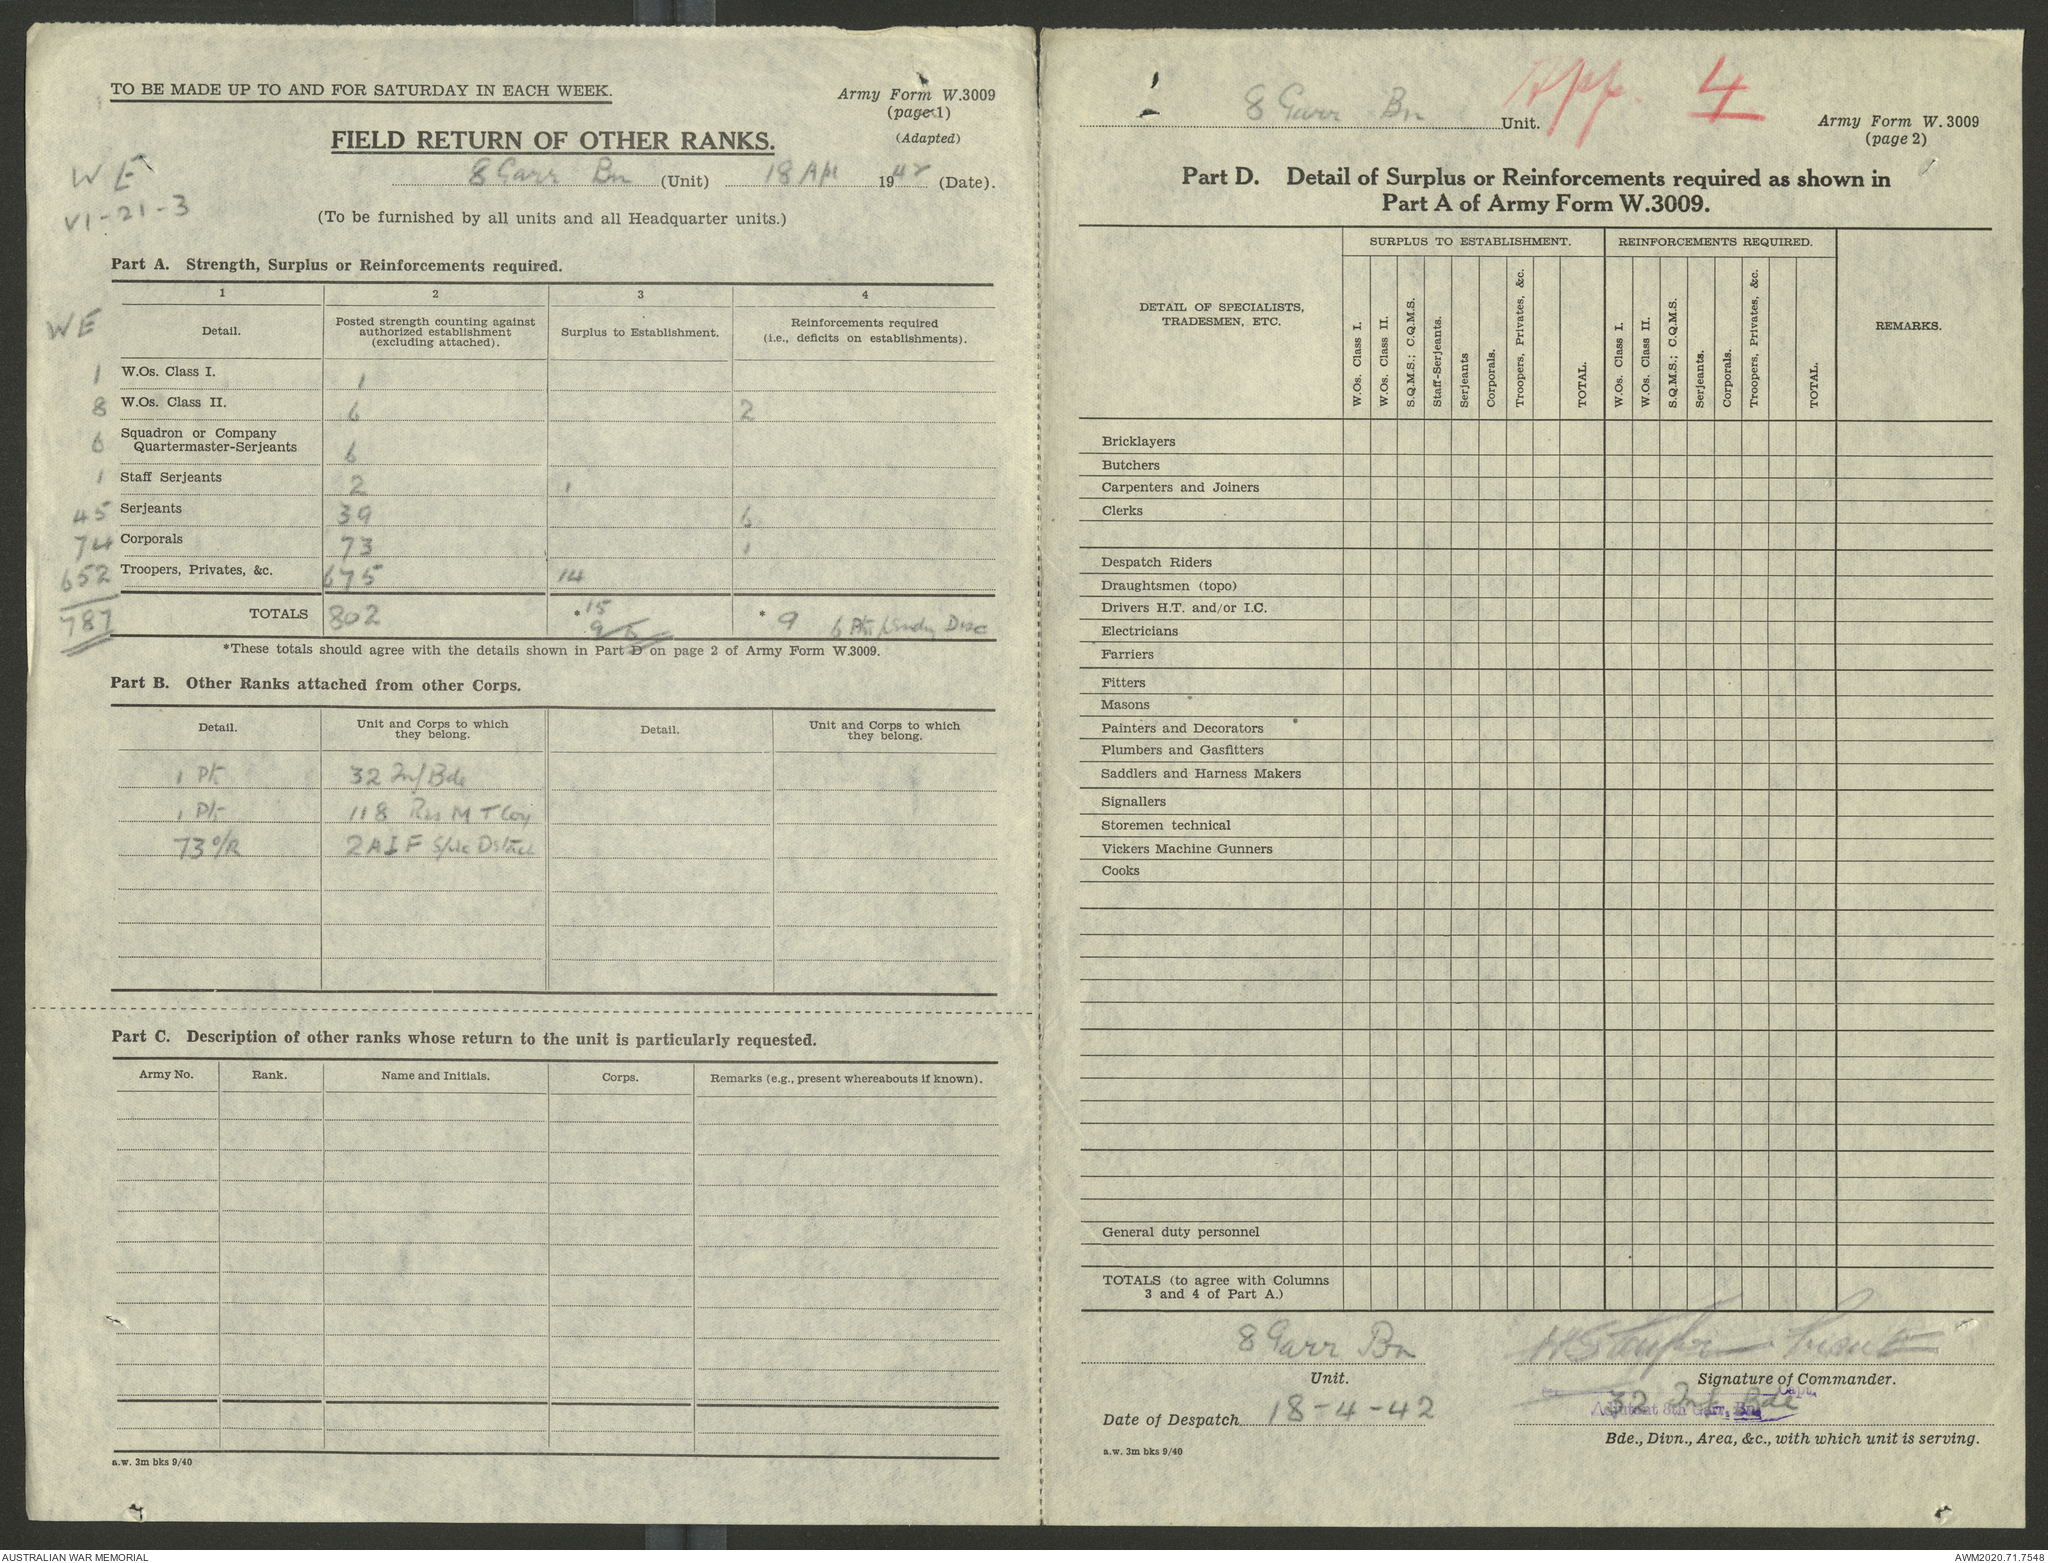 TO BE MADE UP TO AND FOR SATURDAY IN EACH WEEK.
Army Form W.3009
(page 1)
(Adapted)
FIELD RETURN OF OTHER RANKS.
8 Garr Bn (Unit) 18 Apl 1942 (Date).
W E
VI-21-3
(To be furnished by all units and all Headquarter units.)
Part A. Strength, Surplus or Reinforcements required.
1 2 3 4
WE
Detail. Posted strength counting against authorized establishment (excluding attached). Surplus to Establishment. Reinforcements required (i.e., deficits on establishments).
1 W.Os. Class I. 1
8 W.Os. Class II. 6 2
6 Squadron or Company Quartermaster-Serjeants 6
1 Staff Serjeants 2 1
45 Serjeants 39 6
74 Corporals 73 1
652 Troopers, Privates, &c. 675 14
787 TOTALS 802 * 15 * 9 6 Pte
*These totals should agree with the details shown in Part D on page 2 of Army Form W.3009.
Part B. Other Ranks attached from other Corps.
Detail. Unit and Corps to which they belong. Detail. Unit and Corps to which they belong.
1 Pte 32 Inf Bde
1 Pte 118 Res M T Coy
73 O/R 2 A I F
Part C. Description of other ranks whose return to the unit is particularly requested.
Army No. Rank. Name and Initials. Corps. Remarks (e.g., present whereabouts if known).
a.w. 3m bks 9/40
8 Garr Bn Unit.
App. 4
Army Form W. 3009
(page 2)
Part D. Detail of Surplus or Reinforcements required as shown in
Part A of Army Form W.3009.
DETAIL OF SPECIALISTS, TRADESMEN, ETC.
SURPLUS TO ESTABLISHMENT. REINFORCEMENTS REQUIRED. REMARKS.
W.Os. Class I.
W.Os. Class II.
S.Q.M.S.; C.Q.M.S.
Staff-Serjeants.
Serjeants
Corporals.
Troopers, Privates, &c.
TOTAL.
W.Os. Class I.
W.Os. Class II.
S.Q.M.S.; C.Q.M.S.
Serjeants.
Corporals.
Troopers, Privates, &c.
TOTAL.
Bricklayers
Butchers
Carpenters and Joiners
Clerks
Despatch Riders
Draughtsmen (topo)
Drivers H.T. and/or I.C.
Electricians
Farriers
Fitters
Masons
Painters and Decorators
Plumbers and Gasfitters
Saddlers and Harness Makers
Signallers
Storemen technical
Vickers Machine Gunners
Cooks
General duty personnel
TOTALS (to agree with Columns
3 and 4 of Part A.)
8 Garr Bn
Unit.
Signature of Commander.
Capt.
Adjutant 8th Garr. Bn.
32 Inf Bde
Date of Despatch 18-4-42
Bde., Divn., Area, &c., with which unit is serving.
a.w. 3m bks 9/40
AUSTRALIAN WAR MEMORIAL
AWM2020.71.7548